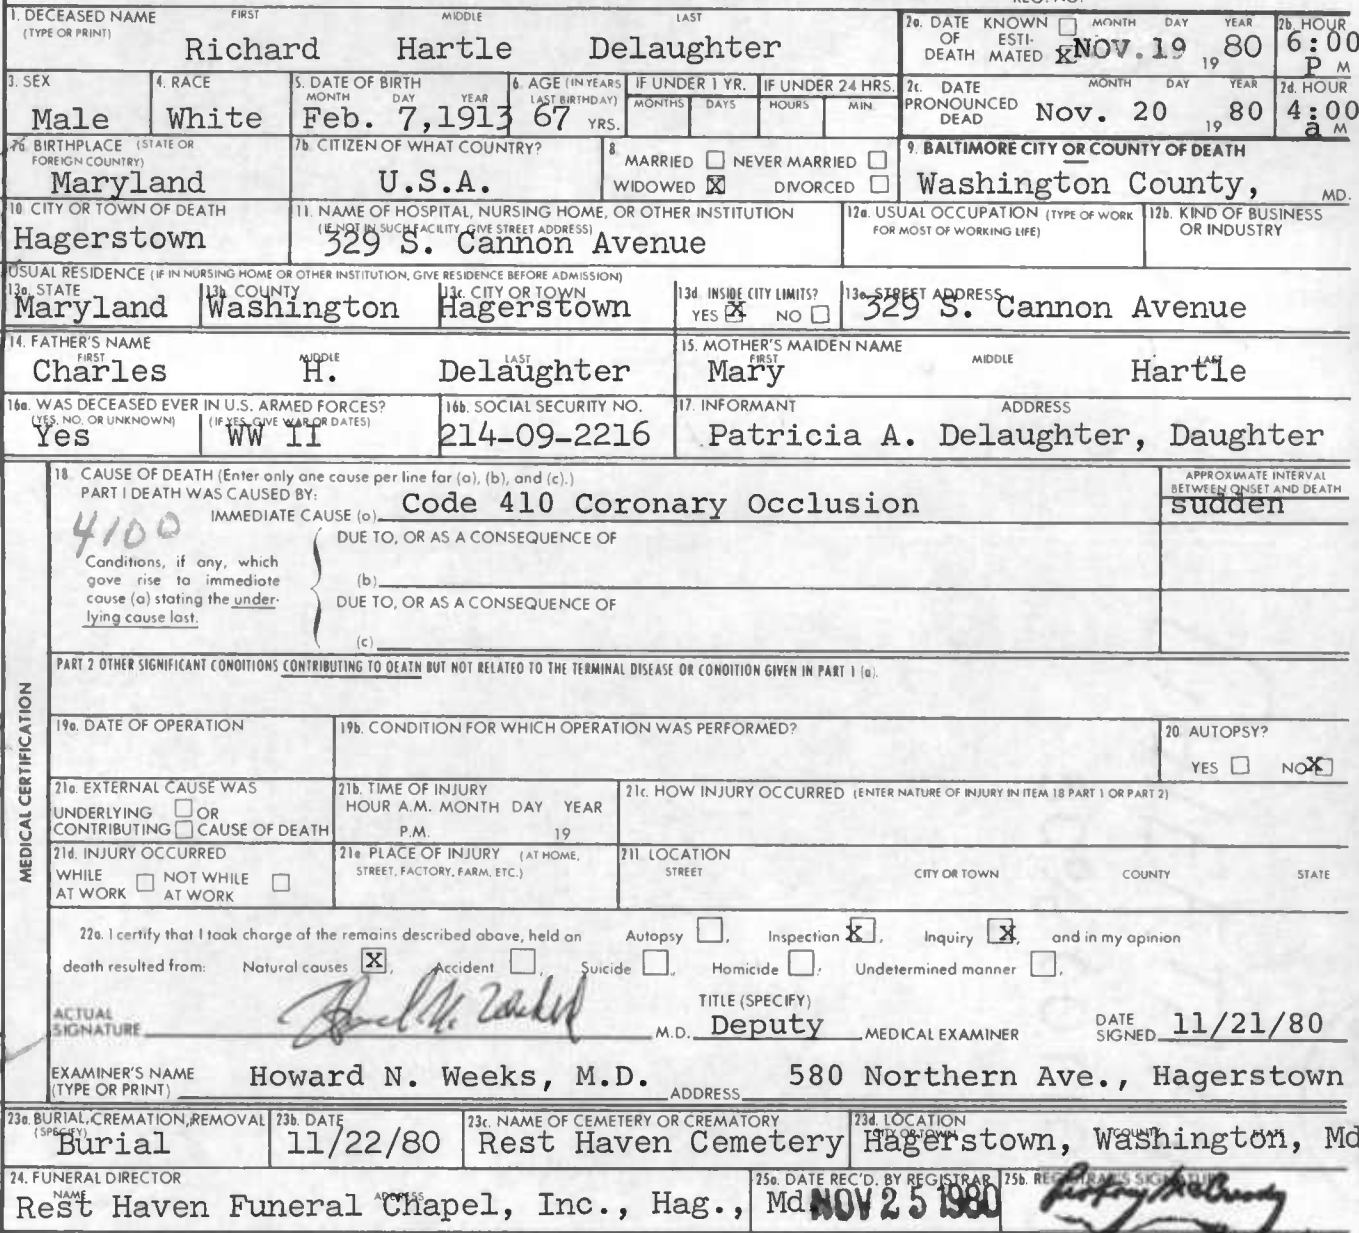 1. DECEASED NAME FIRST MIDDLE LAST
(TYPE OR PRINT)
Richard Hartle Delaughter
2a. DATE KNOWN ☐ MONTH DAY YEAR
OF ESTI-
DEATH MATED X NOV. 19 19 80
2b. HOUR
6:00
P M
3. SEX
Male
4. RACE
White
5. DATE OF BIRTH
MONTH DAY YEAR
Feb. 7,1913
6. AGE (IN YEARS
LAST BIRTHDAY)
67 YRS.
IF UNDER 1 YR.
MONTHS DAYS
IF UNDER 24 HRS.
HOURS MIN.
2c. DATE MONTH DAY YEAR
PRONOUNCED
DEAD Nov. 20 19 80
2d. HOUR
4:00
a M
BIRTHPLACE (STATE OR
FOREIGN COUNTRY)
Maryland
7b. CITIZEN OF WHAT COUNTRY?
U.S.A.
8.
MARRIED ☐ NEVER MARRIED ☐
WIDOWED X DIVORCED ☐
9. BALTIMORE CITY OR COUNTY OF DEATH
Washington County, MD.
10. CITY OR TOWN OF DEATH
Hagerstown
11. NAME OF HOSPITAL, NURSING HOME, OR OTHER INSTITUTION
(IF NOT IN SUCH FACILITY, GIVE STREET ADDRESS)
329 S. Cannon Avenue
12a. USUAL OCCUPATION (TYPE OF WORK
FOR MOST OF WORKING LIFE)
12b. KIND OF BUSINESS
OR INDUSTRY
USUAL RESIDENCE (IF IN NURSING HOME OR OTHER INSTITUTION, GIVE RESIDENCE BEFORE ADMISSION)
13a. STATE
Maryland
13b. COUNTY
Washington
13c. CITY OR TOWN
Hagerstown
13d. INSIDE CITY LIMITS?
YES X NO ☐
13e. STREET ADDRESS
329 S. Cannon Avenue
14. FATHER'S NAME
FIRST MIDDLE LAST
Charles H. Delaughter
15. MOTHER'S MAIDEN NAME
FIRST MIDDLE LAST
Mary Hartle
16a. WAS DECEASED EVER IN U.S. ARMED FORCES?
(YES, NO, OR UNKNOWN) (IF YES, GIVE WAR OR DATES)
Yes WW II
16b. SOCIAL SECURITY NO.
214-09-2216
17. INFORMANT ADDRESS
Patricia A. Delaughter, Daughter
MEDICAL CERTIFICATION
18. CAUSE OF DEATH (Enter only one cause per line for (a), (b), and (c).)
PART I DEATH WAS CAUSED BY:
IMMEDIATE CAUSE (a) Code 410 Coronary Occlusion
APPROXIMATE INTERVAL
BETWEEN ONSET AND DEATH
sudden
4100
DUE TO, OR AS A CONSEQUENCE OF
Conditions, if any, which
gave rise to immediate
cause (a) stating the under-
lying cause last.
(b)
DUE TO, OR AS A CONSEQUENCE OF
(c)
PART 2 OTHER SIGNIFICANT CONDITIONS CONTRIBUTING TO DEATH BUT NOT RELATED TO THE TERMINAL DISEASE OR CONDITION GIVEN IN PART 1 (a).
19a. DATE OF OPERATION
19b. CONDITION FOR WHICH OPERATION WAS PERFORMED?
20. AUTOPSY?
YES ☐ NO X
21a. EXTERNAL CAUSE WAS
UNDERLYING ☐ OR
CONTRIBUTING ☐ CAUSE OF DEATH
21b. TIME OF INJURY
HOUR A.M. MONTH DAY YEAR
P.M. 19
21c. HOW INJURY OCCURRED (ENTER NATURE OF INJURY IN ITEM 18 PART 1 OR PART 2)
21d. INJURY OCCURRED
WHILE ☐ NOT WHILE ☐
AT WORK AT WORK
21e PLACE OF INJURY (AT HOME,
STREET, FACTORY, FARM, ETC.)
21f. LOCATION
STREET CITY OR TOWN COUNTY STATE
22a. I certify that I took charge of the remains described above, held an Autopsy ☐, Inspection X, Inquiry X, and in my opinion
death resulted from: Natural causes X, Accident ☐, Suicide ☐, Homicide ☐, Undetermined manner ☐.
ACTUAL
SIGNATURE M.D.
TITLE (SPECIFY)
Deputy MEDICAL EXAMINER
DATE
SIGNED 11/21/80
EXAMINER'S NAME
(TYPE OR PRINT) Howard N. Weeks, M.D. ADDRESS 580 Northern Ave., Hagerstown
23a. BURIAL, CREMATION, REMOVAL
(SPECIFY)
Burial
23b. DATE
11/22/80
23c. NAME OF CEMETERY OR CREMATORY
Rest Haven Cemetery
23d. LOCATION
CITY OR TOWN COUNTY
Hagerstown, Washington, Md
24. FUNERAL DIRECTOR
NAME ADDRESS
Rest Haven Funeral Chapel, Inc., Hag., Md
25a. DATE REC'D. BY REGISTRAR
NOV 25 1980
25b. REGISTRAR'S SIGNATURE